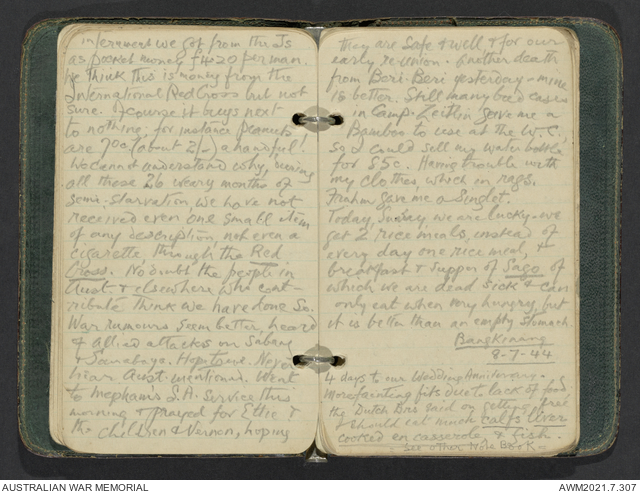 internment we got from the Js
as pocket money f4.20 per man.
We think this is money from the
International Red Cross but not
sure. Of course it buys next
to nothing, for instance peanuts
are 70c (about 2/-) a handful!
We cannot understand why, during
all these 26 weary months of
semi-starvation, we have not
received even one small item
of any description, not even a
cigarette, through the Red
Cross. No doubt the people in
Aust & elsewhere who cont-
ribute think we have done so.
War rumours seem better, heard
of allied attacks on Sabang
& Sourabaya. Hope true. Never
hear Aust. mentioned. Went
to Mephams S.A. Service this
morning & prayed for Ettie &
the children & Vernon, hoping
they are safe & well & for our
early re-union. Another death
from Beri-Beri yesterday - mine
is better. Still many bad cases
in camp. Leitlin gave me a
Bamboo to use at the W.C.,
so I could sell my water bottle
for 55c. Having trouble with
my clothes, which in rags.
gave me a Singlet.
Today, Sunday, we are lucky - we
get 2 rice meals, instead of
every day one rice meal, &
breakfast & supper of Sago of
which we are dead sick & can
only eat when very hungry, but
it is better than an empty stomach.
Bangkinang
8-7-44
4 days to our Wedding Anniversary.
More fainting fits due to lack of food
the Dutch Drs said on getting free
I should eat much calfs liver
cooked en casserole & fish.
See other Note Book
AUSTRALIAN WAR MEMORIAL
AWM2021.7.307